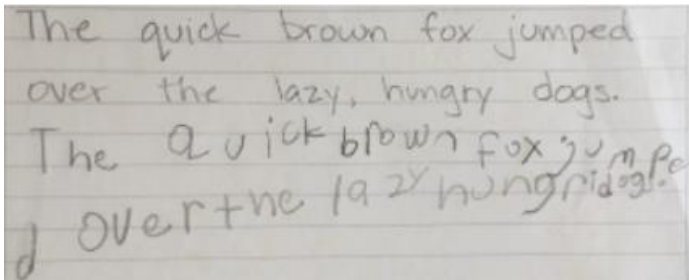 The quick brown fox jumped
over the lazy, hungry dogs.
The quick brown fox jumpe
d over the lazy hungridog.